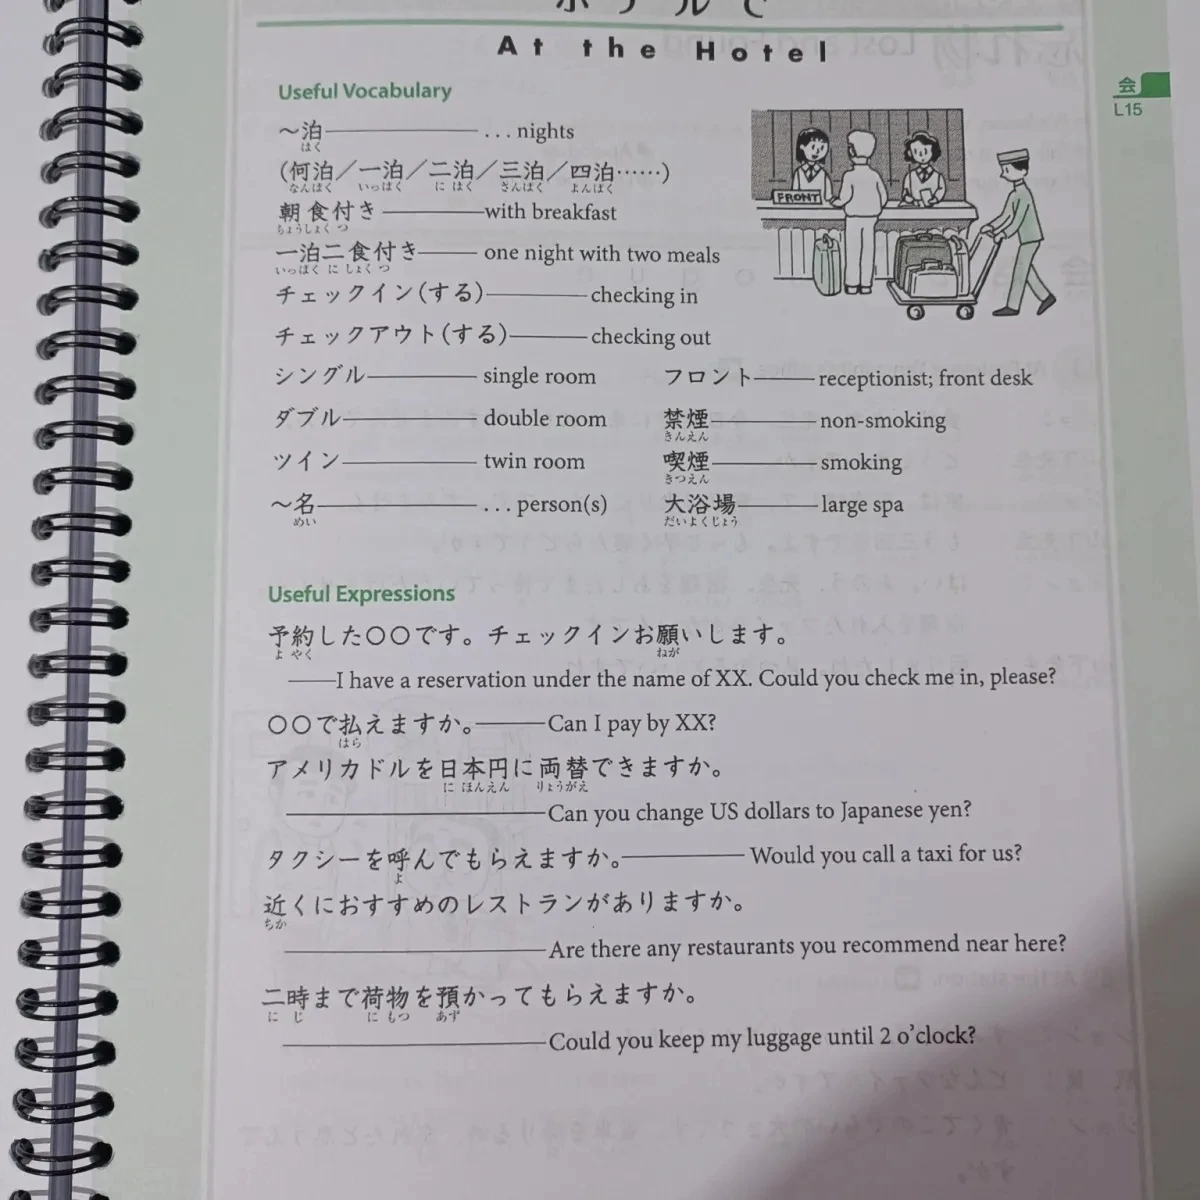 ホテルで
At the Hotel
会
L15
Useful Vocabulary
～泊 ... nights
はく
(何泊／一泊／二泊／三泊／四泊……)
なんぱく いっぱく に はく さんぱく よんぱく
朝食付き with breakfast
ちょうしょく つ
一泊二食付き one night with two meals
いっぱく に しょく つ
チェックイン(する) checking in
チェックアウト(する) checking out
シングル single room
ダブル double room
ツイン twin room
～名 ... person(s)
めい
FRONT
フロント receptionist; front desk
禁煙 non-smoking
きんえん
喫煙 smoking
きつえん
大浴場 large spa
だいよくじょう
Useful Expressions
予約した〇〇です。チェックインお願いします。
よ やく ねが
I have a reservation under the name of XX. Could you check me in, please?
〇〇で払えますか。 Can I pay by XX?
はら
アメリカドルを日本円に両替できますか。
に ほんえん りょうがえ
Can you change US dollars to Japanese yen?
タクシーを呼んでもらえますか。 Would you call a taxi for us?
よ
近くにおすすめのレストランがありますか。
ちか
Are there any restaurants you recommend near here?
二時まで荷物を預かってもらえますか。
に じ に もつ あず
Could you keep my luggage until 2 o'clock?